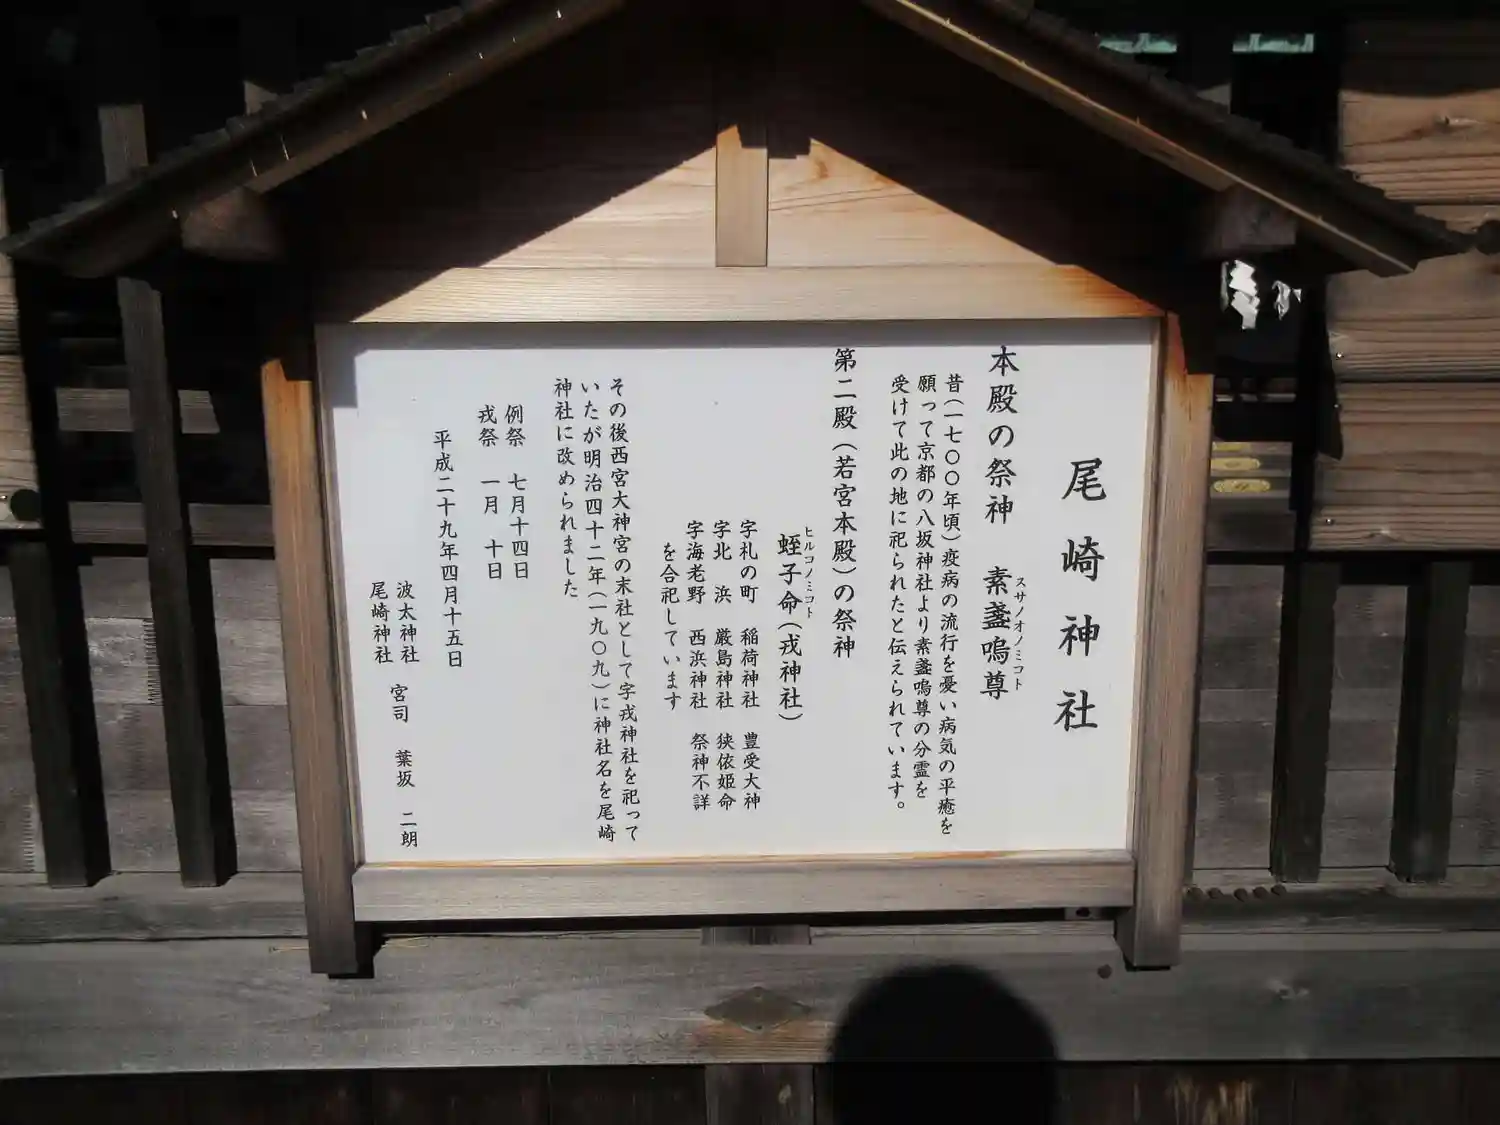 尾崎神社
本殿の祭神　素盞嗚尊
スサノオノミコト
昔（一七〇〇年頃）疫病の流行を憂い病気の平癒を
願って京都の八坂神社より素盞嗚尊の分霊を
受けて此の地に祀られたと伝えられています。
第二殿（若宮本殿）の祭神
ヒルコノミコト
蛭子命（戎神社）
字札の町　稲荷神社　豊受大神
字北　浜　厳島神社　狭依姫命
字海老野　西浜神社　祭神不詳
を合祀しています
その後西宮大神宮の末社として字戎神社を祀って
いたが明治四十二年（一九〇九）に神社名を尾崎
神社に改められました
例祭　七月十四日
戎祭　一月　十日
平成二十九年四月十五日
波太神社
尾崎神社　宮司　葉坂　二朗